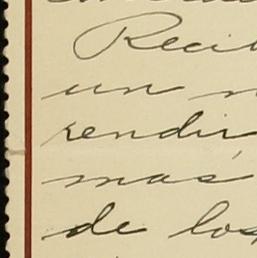 Reci
un
rendir
mas
de los